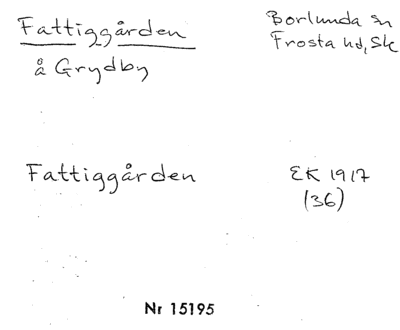 Fattiggården
å Grydby
Borlunda sn
Frosta hd, Sk
Fattiggården
EK 1917
(36)
Nr 15195